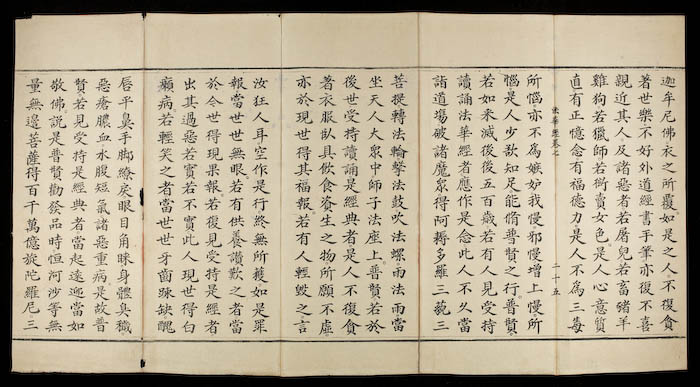 迦牟尼佛衣之所覆如是之人。不復貪
著世樂不好外道經書手筆亦復不喜
親近其人及諸惡者若屠兒若畜猪羊
雞狗若獵師若衒賣女色是人心意質
直有正憶念有福德力是人不為三毒
法華經卷七 二十五
所惱亦不為嫉妒我慢邪慢增上慢所
惱是人少欲知足能脩普賢之行普賢
若如来滅後後五百歲若有人見受持
讀誦法華經者應作是念此人不久當
詣道場破諸魔眾得阿耨多羅三藐三
菩提轉法輪擊法鼓吹法螺雨法雨當
坐天人大眾中師子法座上普賢若於
後世受持讀誦是經典者是人不復貪
著衣服臥具飲食資生之物所願不虛
亦於現世得其福報若有人輕毀之言
汝狂人耳空作是行終無所獲如是罪
報當世世無眼若有供養讚歎之者當
於今世得現果報若復見受持是經者
出其過惡若實若不實此人現世得白
癩病若輕笑之者當世世牙齒踈缺醜
唇平鼻手脚繚戾眼目角睞身體臭穢
惡瘡膿血水腹短氣諸惡重病是故普
賢若見受持是經典者當起遠迎當如
敬佛說是普賢勸發品時恒河沙等無
量無邊菩薩得百千萬億旋陀羅尼。三